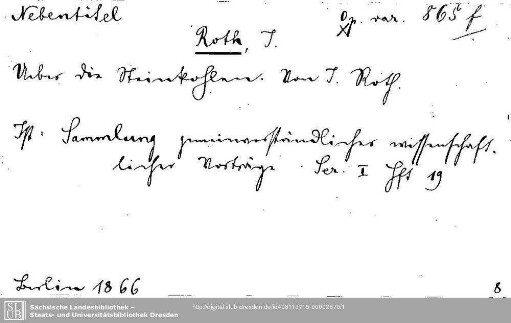 Nebentitel
Op. var. 865 f
Roth, J.
Ueber die Steinkohlen. Von J. Roth.
Ist: Sammlung gemeinverständlicher wissenschaft-
licher Vorträge. Ser. I Hft 19
Berlin 1866
8
Sächsische Landesbibliothek –
Staats- und Universitätsbibliothek Dresden